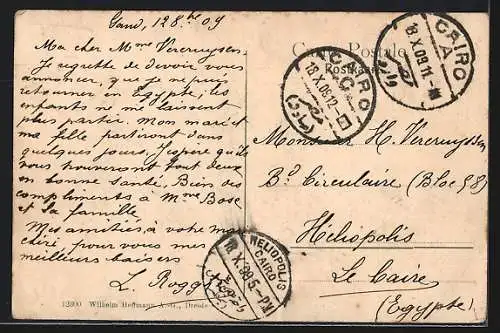 Gand, 12 8bre 09
Ma cher Mme Vercruyssen
Je regrette de devoir vous
annoncer, que je ne puis
retourner en Egypte; les
enfants ne me laissent
plus partir. Mon mari et
ma fille partiront dans
quelques jours. J'espère qu'ils
vous trouveront tout deux
en bonne santé. Bien des
compliments à Mme Bose
et sa famille
Mes amitiés, à votre mari
chéri, pour vous mes
meilleurs baisers
L. Rogghe
12300 Wilhelm Hoffmann A.-Gr., Dresden
Carte Postale
Postkarte
CAIRO
C
18.X.09.12
CAIRO
A
18.X.09.11-M
Monsieur H. Vercruyssen
Bd Circulaire (Bloc 58)
Héliopolis
Le Caire
(Egypte)
HELIOPOLIS
CAIRO
18.X.09.5-PM